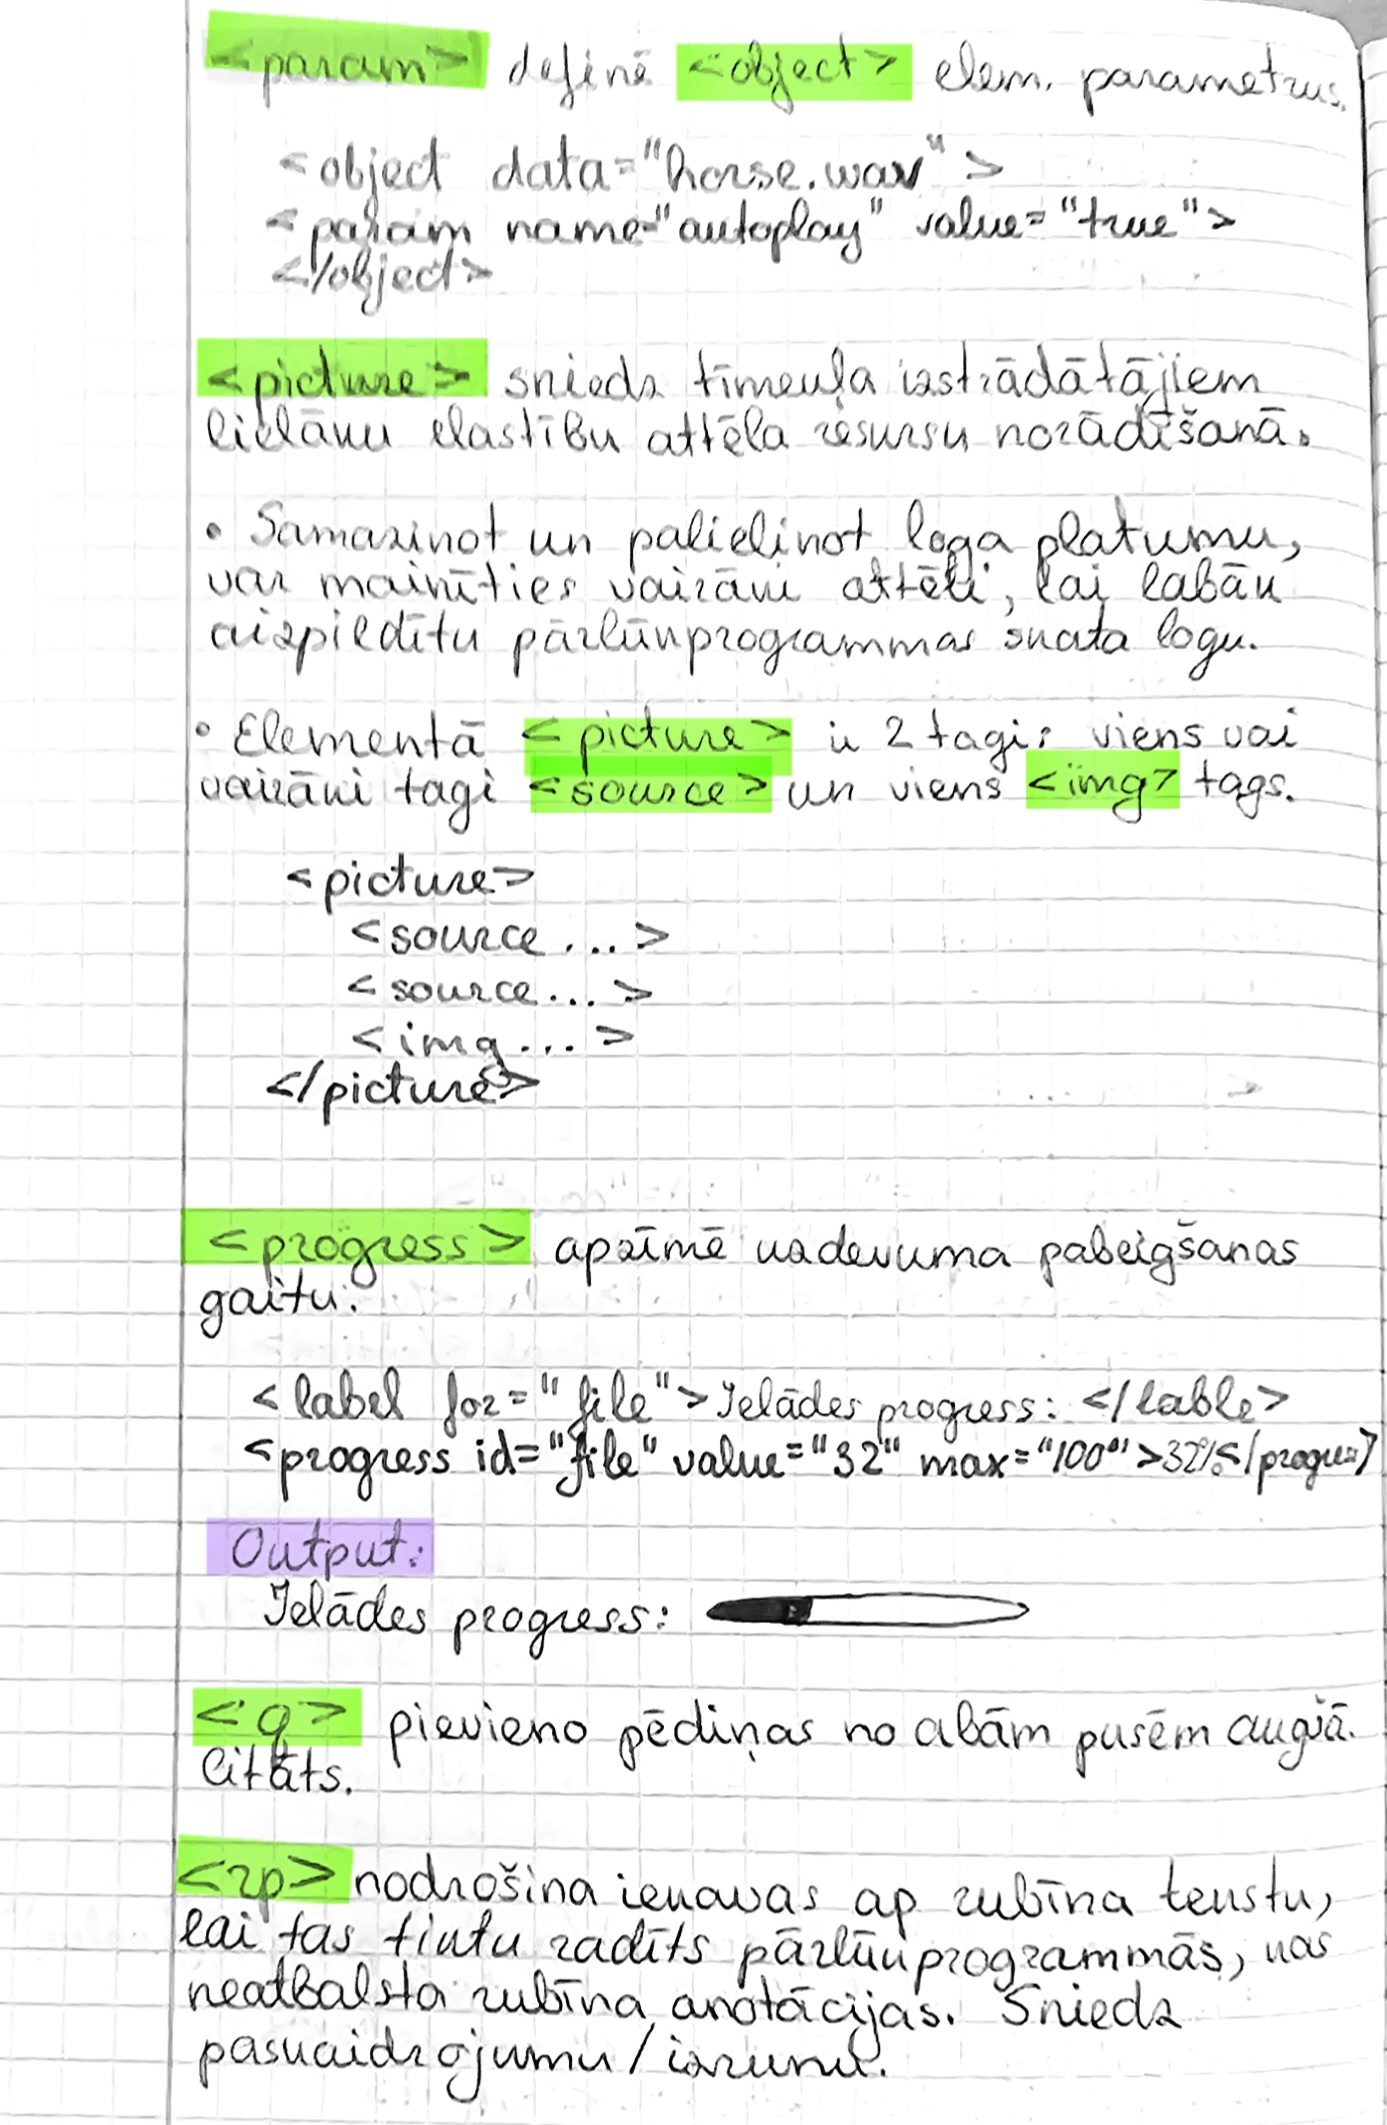 <param> definē <object> elem. parametrus.
<object data="horse.wav">
<param name="autoplay" value="true">
</object>
<picture> sniedz tīmekļa izstrādātājiem
lielāku elastību attēla resursu norādīšanā.
• Samazinot un palielinot loga platumu,
var mainīties vairāki attēli, lai labāk
aizpildītu pārlūkprogrammas skata logu.
• Elementā <picture> ir 2 tagi: viens vai
vairāki tagi <source> un viens <img> tags.
<picture>
<source...>
<source...>
<img...>
</picture>
<progress> apzīmē uzdevuma pabeigšanas
gaitu.
<label for="file">Ielādes progress: </lable>
<progress id="file" value="32" max="100">32%</progress>
Output:
Ielādes progress:
<q> pievieno pēdiņas no abām pusēm augšā.
Citāts.
<rp> nodrošina iekavas ap rubīna tekstu,
lai tas tiktu radīts pārlūkprogrammās, kas
neatbalsta rubīna anotācijas. Sniedz
paskaidrojumu/izrunu.